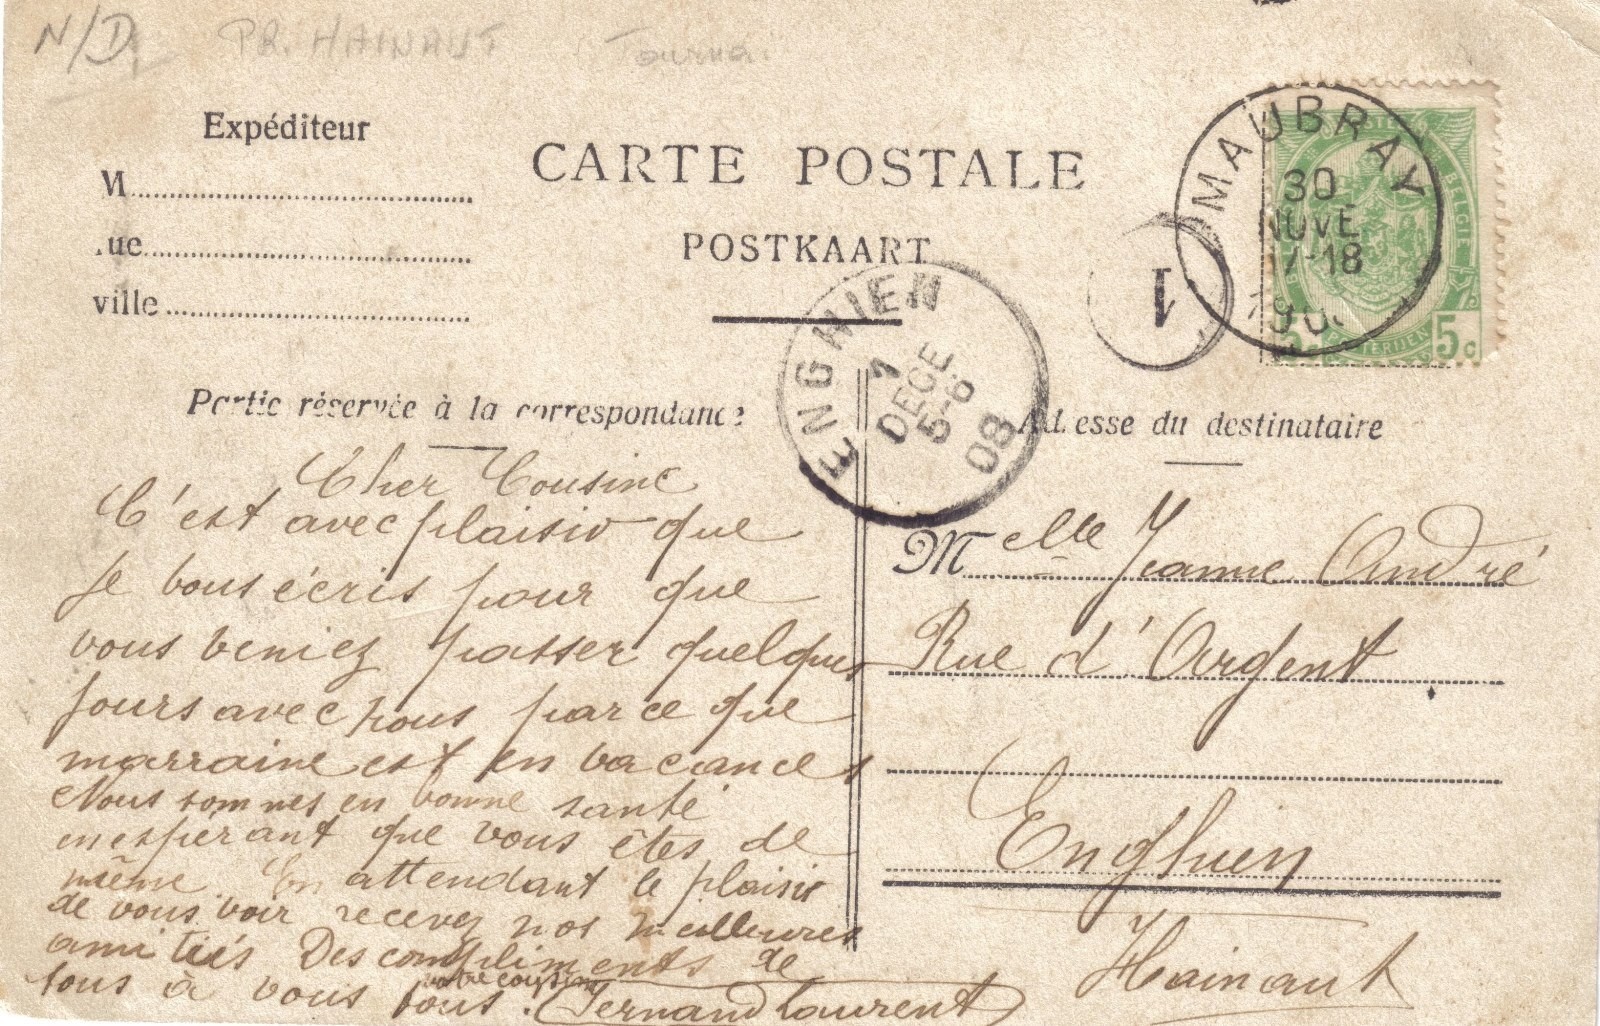 N/D PR. HAINAUT Tournai
Expéditeur
M
rue
ville
CARTE POSTALE
POSTKAART
MAUBRAY
30
NOVE
17-18
190
BELGIE
POSTERIJEN
5c
1
ENGHIEN
1
DECE
5-6
08
Partie réservée à la correspondance
Cher Cousine
C'est avec plaisir que
je vous écris pour que
vous veniez passer quelques
jours avec nous parce que
marraine est en vacances
Nous sommes en bonne santé
en espérant que vous êtes de
même. En attendant le plaisir
de vous voir recevez nos meilleures
amitiés Des compliments de
tous à vous tous. votre cousin Fernand Laurent
Adresse du destinataire
Melle Jeanne André
Rue d'Argent
Enghien
Hainaut